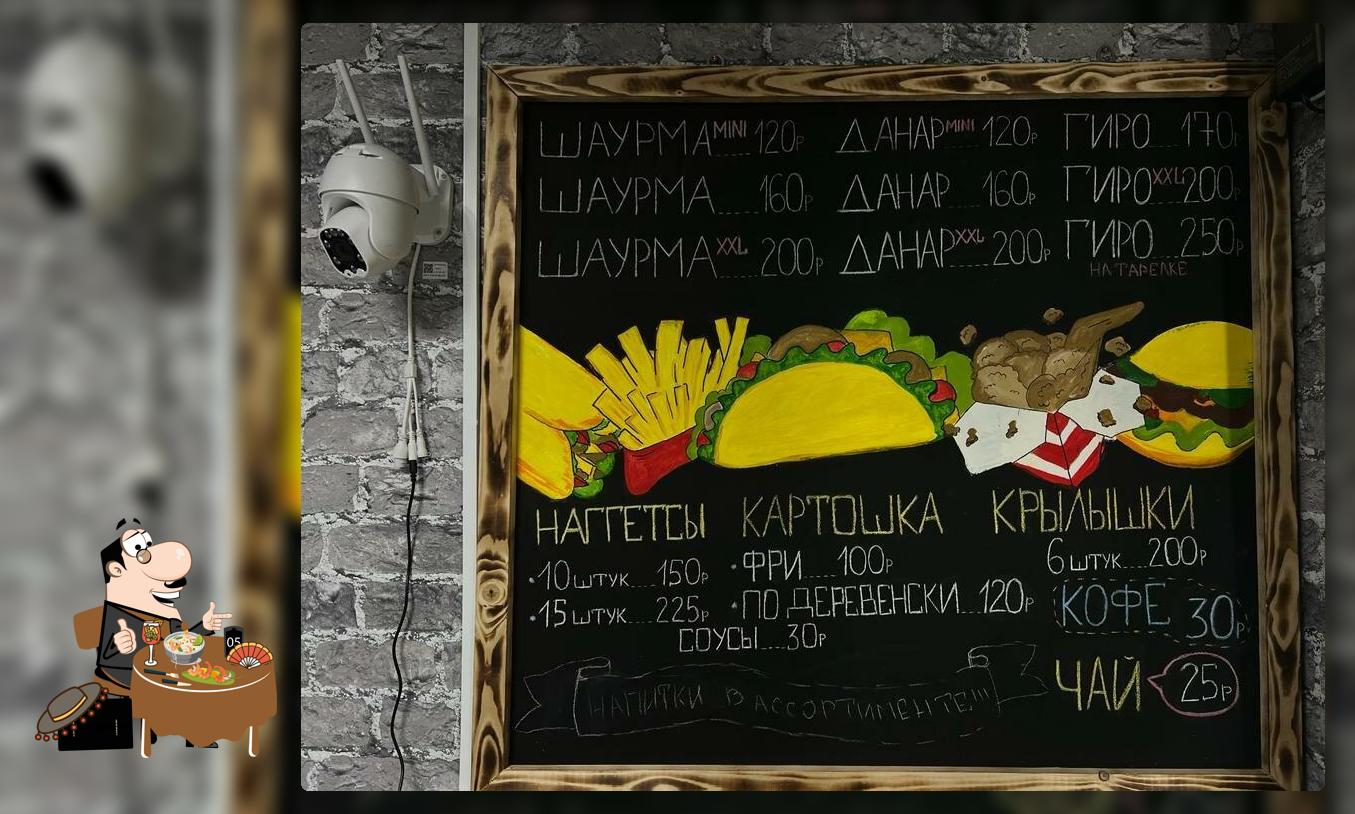 ШАУРМА MINI 120р
ДАНАР MINI 120р
ГИРО 170р
ШАУРМА 160р
ДАНАР 160р
ГИРО XXL 200р
ШАУРМА XXL 200р
ДАНАР XXL 200р
ГИРО 250р
НА ТАРЕЛКЕ
НАГГЕТСЫ
·10 штук.....150р
·15 штук.....225р
КАРТОШКА
·ФРИ......100р
·ПО ДЕРЕВЕНСКИ...120р
СОУСЫ.....30р
КРЫЛЫШКИ
6 штук....200р
КОФЕ 30р
ЧАЙ 25р
НАПИТКИ В АССОРТИМЕНТЕ!!!
05